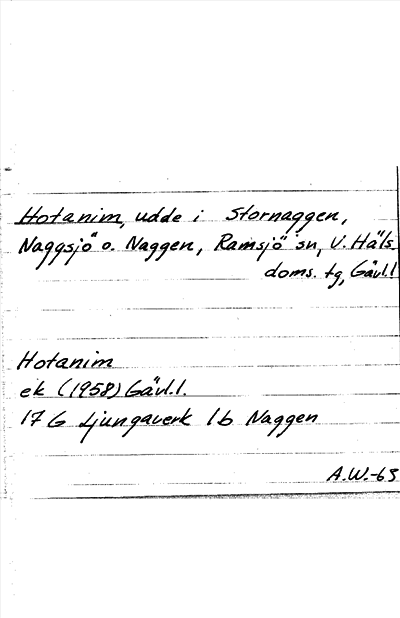 Hotanim, udde i Stornaggen,
Naggsjö o. Naggen, Ramsjö sn, V. Häls.
doms. tg, Gävl.l
Hotanim
ek (1958) Gävl.l.
17 G Ljungaverk 1b Naggen
A.W.-63